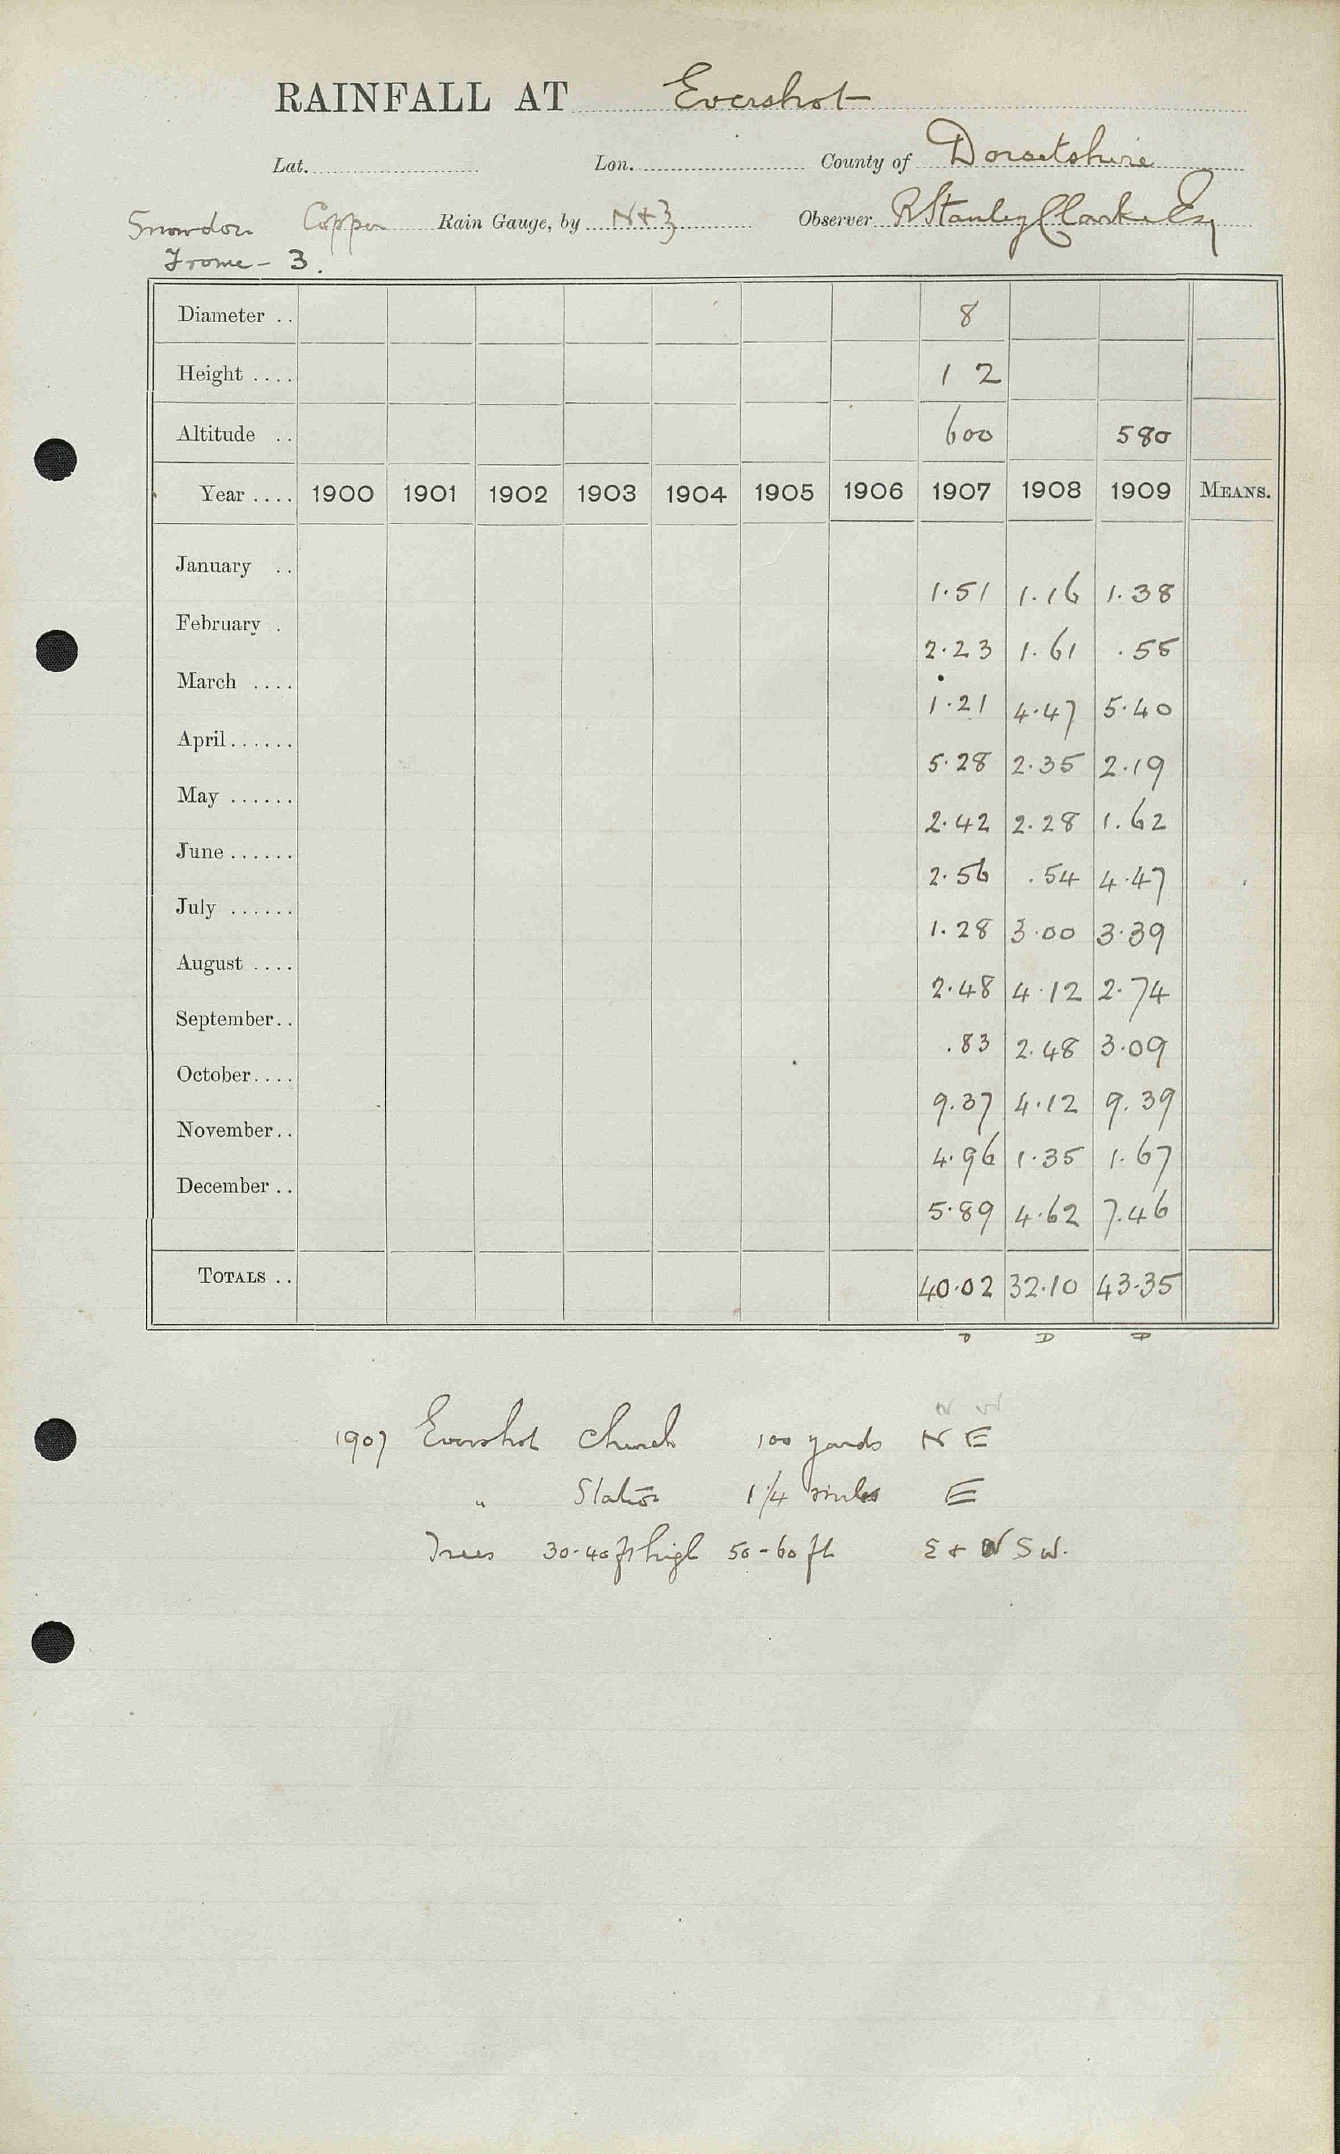 RAINFALL AT Evershot
Lat. Lon. County of Dorsetshire
Snowdon Copper Rain Gauge, by N & Z Observer R Stanley Clarke Esq
Frome - 3.
Diameter .. 8
Height .... 1 2
Altitude .. 600 580
Year .... 1900 1901 1902 1903 1904 1905 1906 1907 1908 1909 MEANS.
January .. 1.51 1.16 1.38
February . 2.23 1.61 .55
March .... 1.21 4.47 5.40
April...... 5.28 2.35 2.19
May ...... 2.42 2.28 1.62
June...... 2.56 .54 4.47
July ...... 1.28 3.00 3.39
August .... 2.48 4.12 2.74
September.. .83 2.48 3.09
October.... 9.37 4.12 9.39
November.. 4.96 1.35 1.67
December .. 5.89 4.62 7.46
TOTALS .. 40.02 32.10 43.35
D D D
N W
1907 Evershot Church 100 yards N E
" Station 1 1/4 miles E
Trees 30-40 ft high 50-60 ft E & SW.